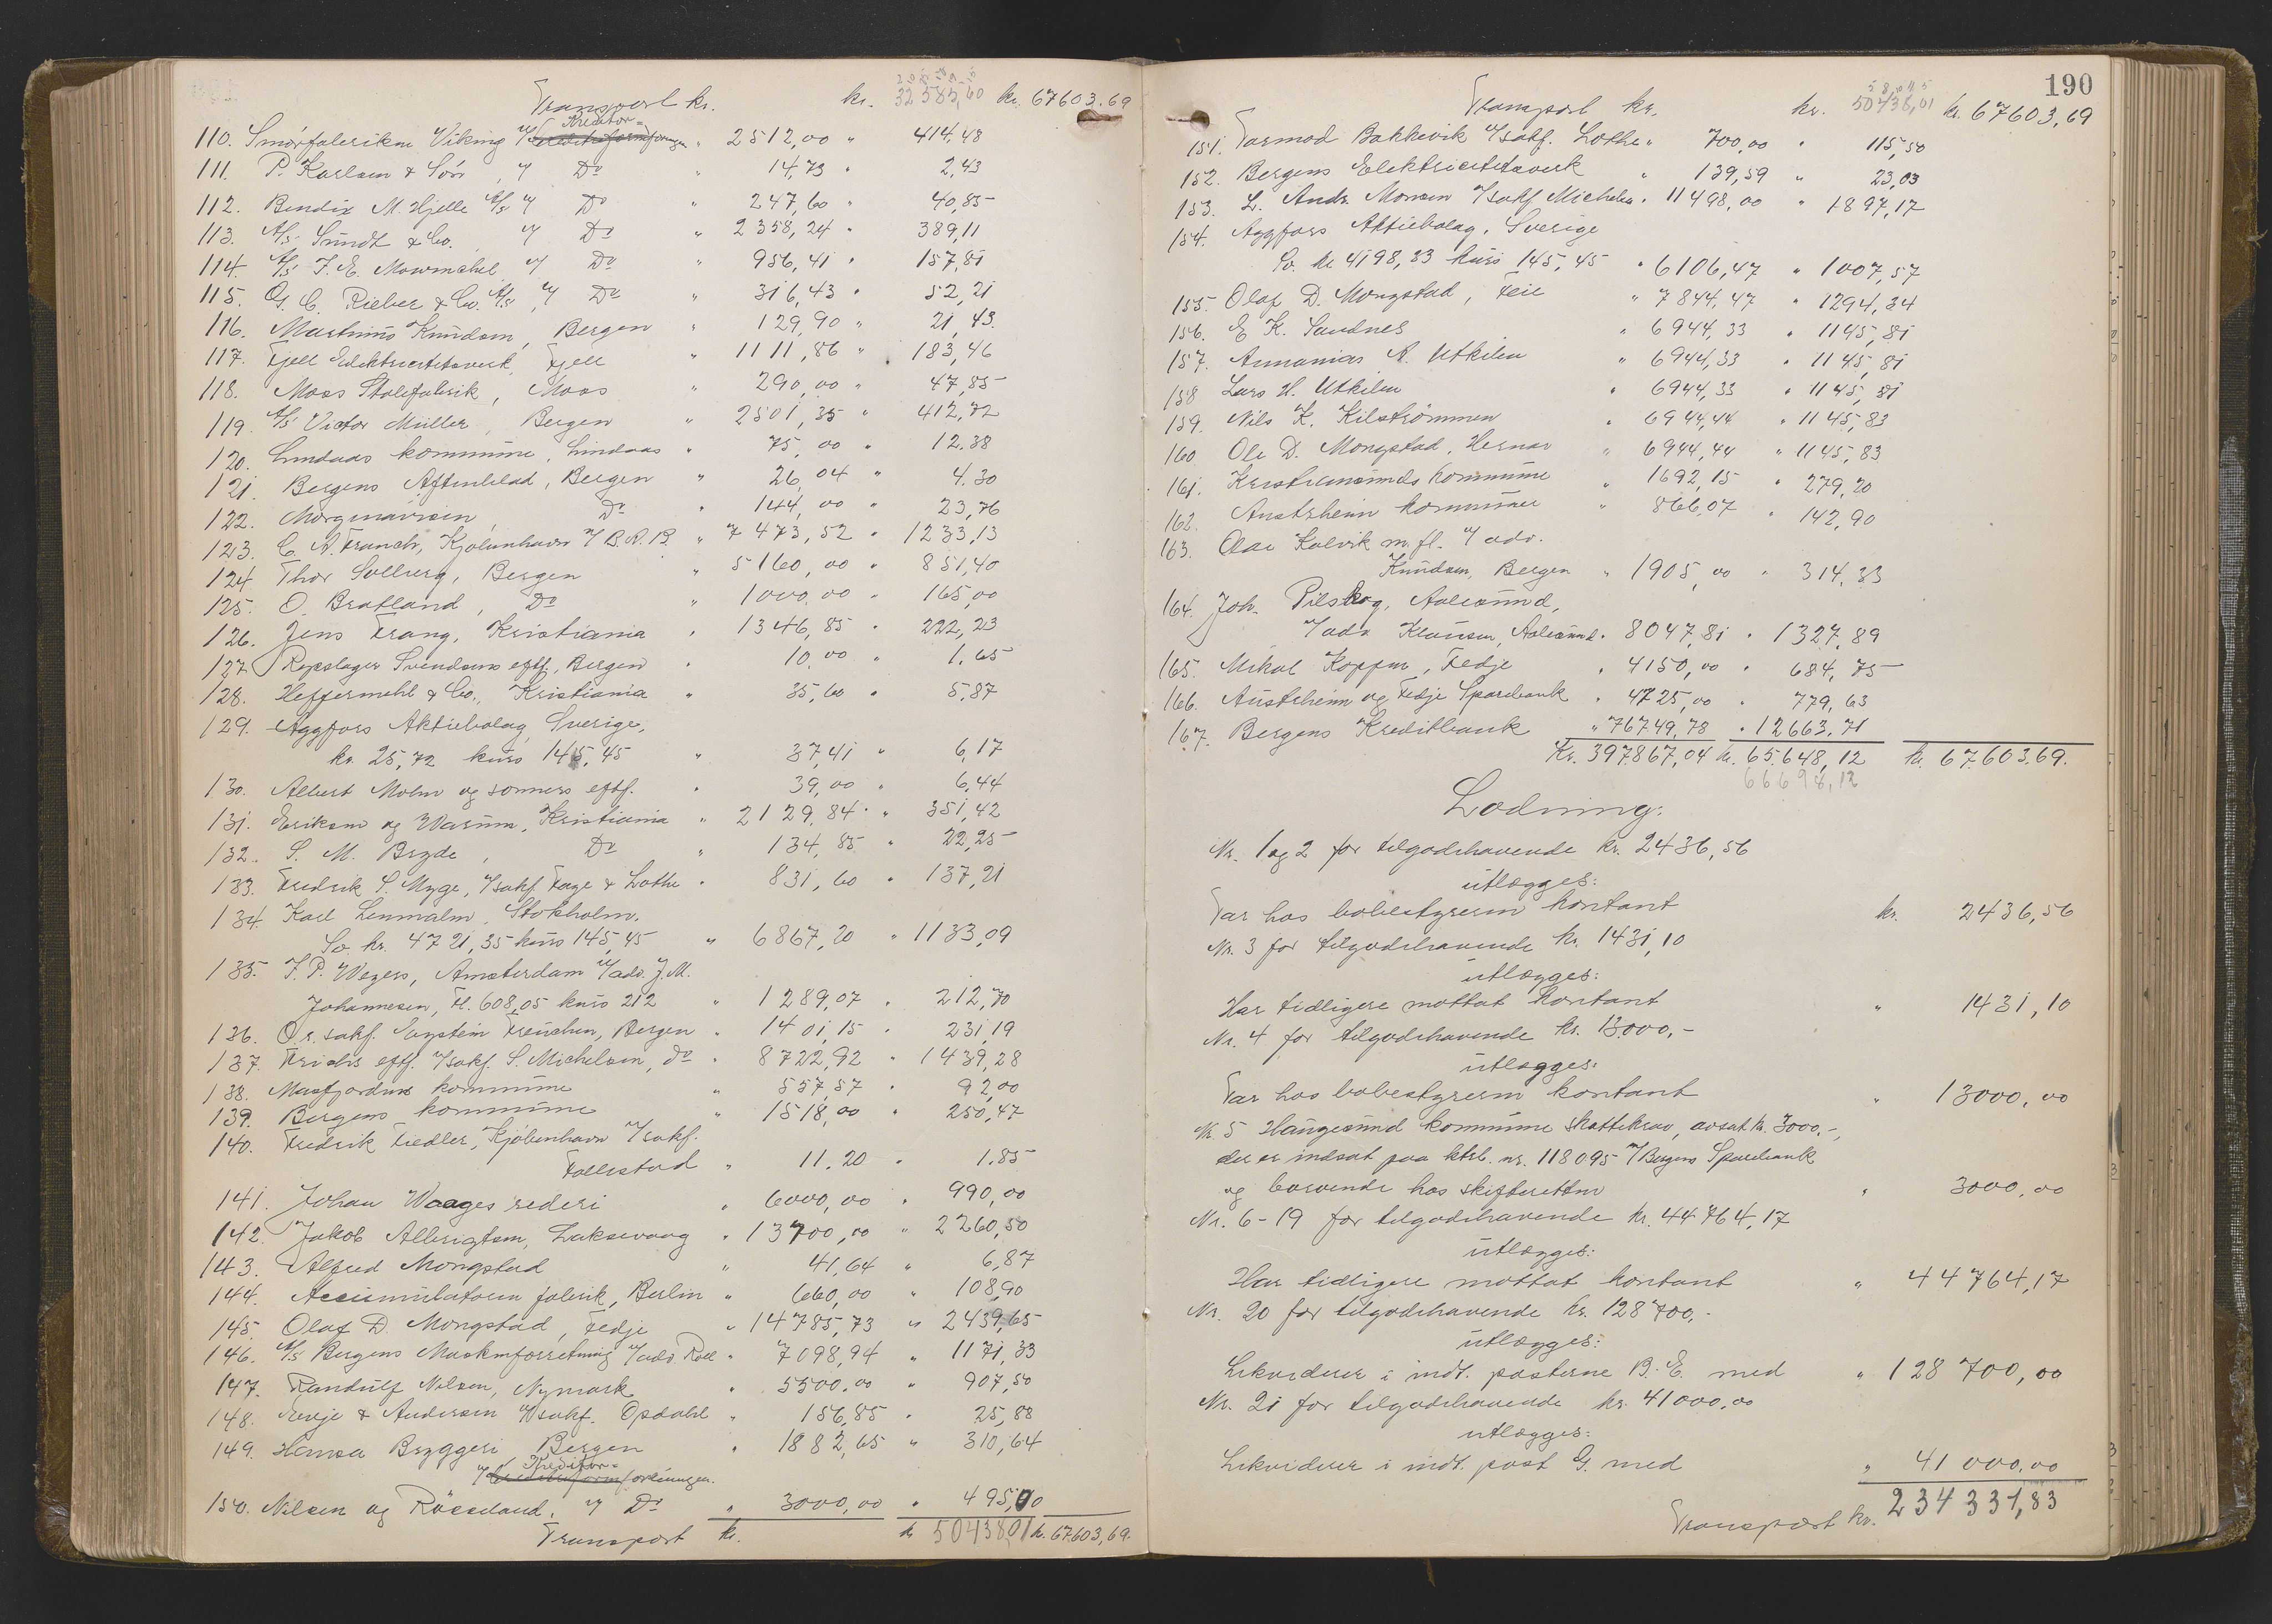 Transport kr. kr. 32583,60 kr. 67603.69
Kreditor=
110. Smørfabrikken Viking v/ foreningen " 2512,00 " 414,48
111. P. Karlsen & Søn, v/ Do " 14,73 " 2,43
112. Bendix M. Hjelle A/s v/ Do " 247,60 " 40,85
113. A/s Sundt & Co. v/ Do " 2358,24 " 389,11
114. A/s F. E. Mowinckel v/ Do " 956,41 " 157,81
115. G. C. Rieber & Co. A/s, v/ Do " 316,43 " 52,21
116. Martinus Knudsen, Bergen " 129,90 " 21,43
117. Fjell Elektricitetsverk, Fjell " 1111,86 " 183,46
118. Moss Stolefabrik, Moss " 290,00 " 47,85
119. A/s Victor Müller, Bergen " 2501,35 " 412,72
120. Lindaas kommune, Lindaas " 75,00 " 12.38
121. Bergens Aftenblad, Bergen " 26,04 " 4.30
122. Morgenavisen, Do " 144,00 " 23,76
123. C. A. Franch, Kjøbenhavn v/ B.R.B. " 7473,52 " 1233,13
124. Thor Solberg, Bergen " 5160,00 " 851,40
125. O. Bratland, Do " 1000,00 " 165,00
126. Jens Frang, Kristiania " 1346,85 " 222,23
127. Repslager Svendsens eftf., Bergen " 10,00 " 1.65
128. Heffermehl & Co., Kristiania " 35,60 " 5,87
129. Aggfors Aktiebolag Sverige,
kr. 25,72 kurs 145,45 " 37,41 " 6,17
130. Albert Mohn og sønners eftf. " 39,00 " 6,44
131. Eriksen og Warum, Kristiania " 2129,84 " 351,42
132. S. M. Bryde, Do " 134,85 " 22,25
133. Fredrik S. Myge, v/sakf. Faye & Lothe " 831,60 " 137,21
134. Karl Lenmalm, Stokholm,
Sv. kr. 4721,35 kurs 145,45 " 6867,20 " 1133,09
135. F. P. Wezers, Amsterdam v/adv. J.M.
Johannesen, Fl. 608,05 kurs 212 " 1289,07 " 212,70
136. O.r.sakf. Eystein Freuchen, Bergen " 1401,15 " 231,19
137. Frichs eftf. v/sakf. S. Michelsen, do " 8722,92 " 1439,28
138. Masfjordens kommune " 557,57 " 92,00
139. Bergens kommune " 1518,00 " 250,47
140. Fredrik Fiedler, Kjøbenhavn v/sakf.
Follestad " 11.20 " 1.85
141. Johan Waages rederi " 6000,00 " 990,00
142. Jakob Albrigtsen, Laksevaag " 13700,00 " 2260,50
143. Alfred Mongstad " 41,64 " 6,87
144. Accumulatoren fabrik, Berlin " 660,00 " 108,90
145. Olaf D. Mongstad, Fedje " 14785,73 " 2439,65
146. A/s Bergens Maskinforretning v/adv. Roll " 7098,94 " 1171,33
147. Randulf Nilsen, Nymark " 5500,00 " 907,50
148. Eeije & Andersen v/sakf. Opdahl " 156,85 " 25,88
149. Hansa Bryggeri, Bergen " 1882,65 " 310,64
Kreditor=
v/ foreningen.
150. Nilsen og Rösseland, v/ Do " 3000,00 " 495,00
Transport kr. kr. 50438,01 kr. 67603,69.
190
Transport kr. kr. 50438,01 kr. 67603,69
151. Tarmod Bakkevik v/sakf. Lothe " 700,00 " 115,50
152. Bergens Elektricitetsverk " 139,59 " 23,03
153. L. Andr. Monsen v/sakf Michelsen " 11498,00 " 1897,17
154. Aggfors Aktiebolag, Sverige
Sv. kr. 4198,33 kurs 145,45 " 6106,47 " 1007,57
155. Olaf D. Mongstad, Feie " 7844,47 " 1294,34
156. E. K. Sandnes " 6944,33 " 1145,81
157. Annanias A. Utkilen " 6944,33 " 1145,81
158 Lars H. Utkilen " 6944,33 " 1145,81
159. Nils K. Kilstrømmen " 6944,44 " 1145,83
160. Ole D. Mongstad, Hernar " 6944,44 " 1145,83
161. Kristiansunds kommune " 1692,15 " 279,20
162. Austrheim kommune " 866,07 " 142,90
163. Olai Kalvik m.fl. v/adv.
Knudsen, Bergen " 1905,00 " 314,33
164. Joh. Pilskog, Aalesund,
v/adv Klausen, Aalesund " 8047,81 " 1327,89
165. Mikal Koppen, Fedje " 4150,00 " 684,75
166. Austrheim og Fedje Sparebank " 4725,00 " 779,63
167. Bergens Kreditbank " 76749,78 " 12663,71
Kr. 397867,04 kr. 65648,12 kr. 67603.69.
66698,12
Lodning:
Nr. 1 og 2 for tilgodehavende kr. 2436,56
utlægges:
Tar hos bobestyreren kontant kr. 2436,56
Nr. 3 for tilgodehavende kr. 1431,10
utlægges:
Har tidligere mottat kontant " 1431,10
Nr. 4 for tilgodehavende kr. 13000,-
utlægges:
Tar hos bobestyreren kontant " 13000,00
Nr. 5 Haugesund kommune skattekrav, avsat kr. 3000.-,
der er indsat paa ktrb. nr. 118095 i/ Bergens Sparebank
og beroende hos skifteretten " 3000,00
Nr. 6-19 for tilgodehavende kr. 44764,17
utlægges:
Har tidligere mottat kontant " 44764,17
Nr. 20 for tilgodehavende kr. 128700,-
utlægges:
Likviderer i indt. posterne B-E. med " 128700,00
Nr. 21 for tilgodehavende kr. 41000,00
utlægges:
Likviderer i indt. post G. med " 41000,00
Transport kr. 234331,83